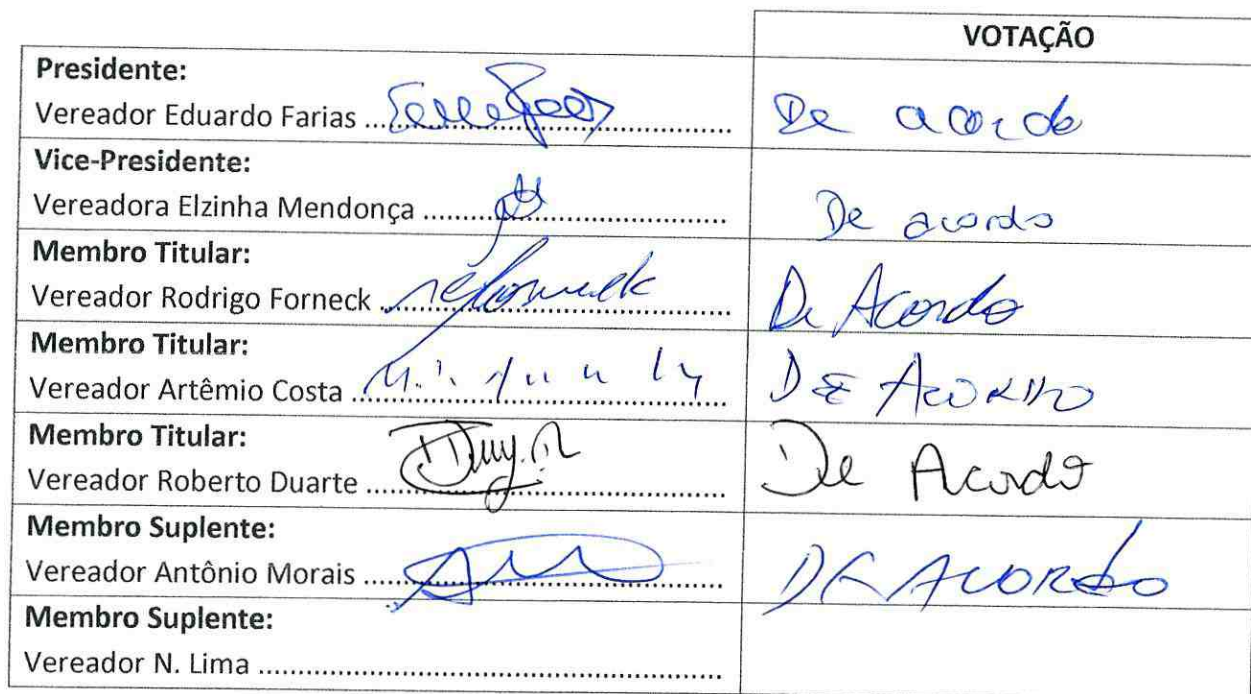 VOTAÇÃO
Presidente:
Vereador Eduardo Farias ........................................ De acordo
Vice-Presidente:
Vereadora Elzinha Mendonça ........................................ De acordo
Membro Titular:
Vereador Rodrigo Forneck ........................................ De Acordo
Membro Titular:
Vereador Artêmio Costa ........................................ DE ACORDO
Membro Titular:
Vereador Roberto Duarte ........................................ De Acordo
Membro Suplente:
Vereador Antônio Morais ........................................ DE ACORDO
Membro Suplente:
Vereador N. Lima ........................................